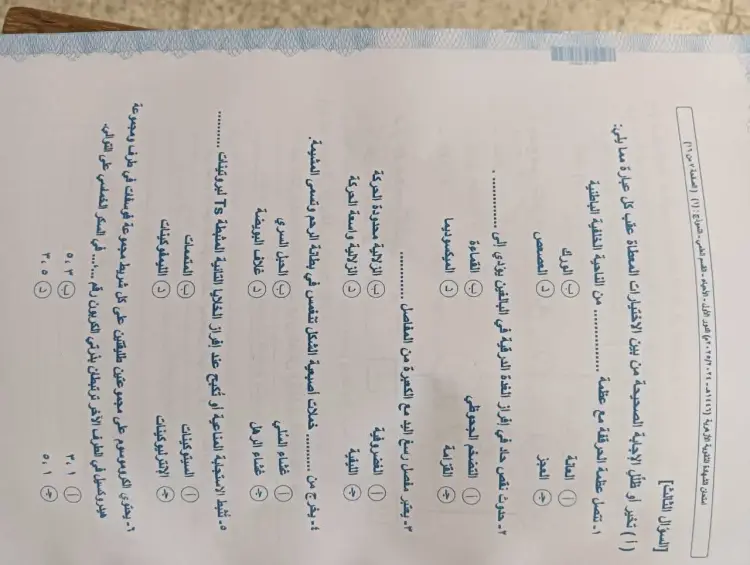 امتحان الشهادة الثانوية الأزهرية (١٤٤٦هـ - ٢٠٢٤/٢٠٢٥م) الدور الأول - الأحياء - القسم العلمي - النموذج: (١) (الصفحة ٧ من ١٦)
[السؤال الثالث]
(أ) تخير أو ظلل الإجابة الصحيحة من بين الاختيارات المعطاة عقب كل عبارة مما يلي:
١- تتصل عظمة الحرقفة مع عظمة .............. من الناحية الخلفية الباطنية
أ العانة ب الورك
ج العجز د العصعص
٢- حدوث نقص حاد في إفراز الغدة الدرقية في البالغين يؤدي إلى .............. .
أ التضخم الجحوظي ب القماءة
ج القزامة د الميكسوديما
٣- يعتبر مفصل رسغ اليد مع الكعبرة من المفاصل ..............
أ الغضروفية ب الزلالية محدودة الحركة
ج الليفية د الزلالية واسعة الحركة
٤- يخرج من .............. خملات أصبعية الشكل تنغمس في بطانة الرحم وتسمى المشيمة.
أ غشاء السلي ب الحبل السري
ج غشاء الرهل د غلاف البويضة
٥- تثبط الاستجابة المناعية أو تكبح عند إفراز الخلايا التائية المثبطة Ts لبروتينات ..........
أ السيتوكينات ب المتممات
ج الإنترليوكينات د الليمفوكينات
٦- يحتوي الكروموسوم على مجموعتين طليقتين على كل شريط مجموعة فوسفات في طرف ومجموعة
هيدروكسيل في الطرف الآخر ترتبطان بذرتي الكربون رقم ....... في السكر الخماسي على التوالي.
أ ٣ ، ١ ب ٥ ، ٣
ج ٥ ، ١ د ٣ ، ٥